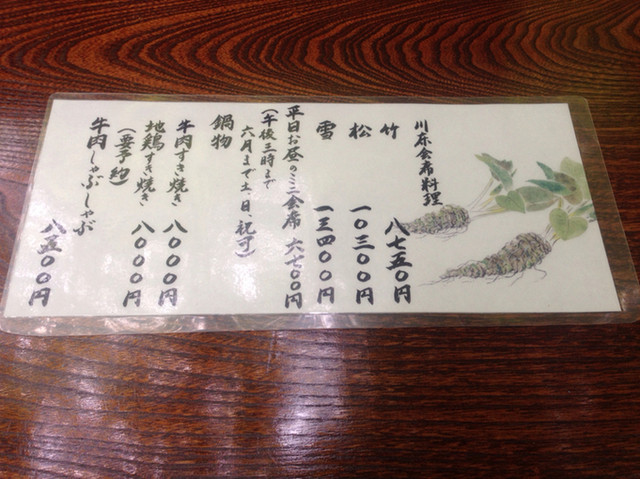 川床会席料理
竹 八七五〇円
松 一〇三〇〇円
雪 一三四〇〇円
平日お昼のミニ会席 六七〇〇円
(午後三時まで
六月まで土、日、祝可)
鍋物
牛肉すき焼き 八〇〇〇円
地鶏すき焼き 八〇〇〇円
(要予約)
牛肉しゃぶしゃぶ 八五〇〇円